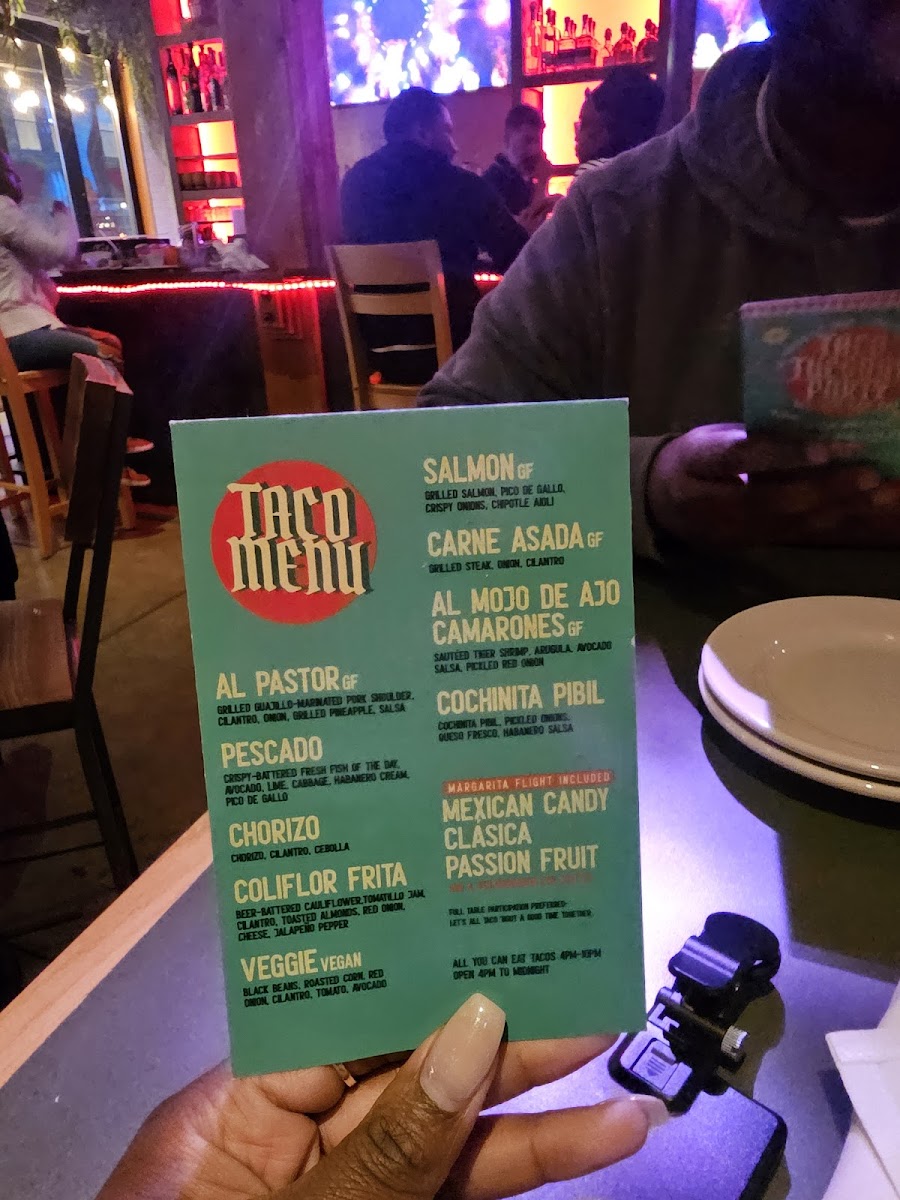 TACO
MENU
AL PASTOR GF
GRILLED GUAJILLO-MARINATED PORK SHOULDER,
CILANTRO, ONION, GRILLED PINEAPPLE, SALSA
PESCADO
CRISPY-BATTERED FRESH FISH OF THE DAY,
AVOCADO, LIME, CABBAGE, HABANERO CREAM,
PICO DE GALLO
CHORIZO
CHORIZO, CILANTRO, CEBOLLA
COLIFLOR FRITA
BEER-BATTERED CAULIFLOWER, TOMATILLO JAM,
CILANTRO, TOASTED ALMONDS, RED ONION,
CHEESE, JALAPENO PEPPER
VEGGIE VEGAN
BLACK BEANS, ROASTED CORN, RED
ONION, CILANTRO, TOMATO, AVOCADO
SALMON GF
GRILLED SALMON, PICO DE GALLO,
CRISPY ONIONS, CHIPOTLE AIOLI
CARNE ASADA GF
GRILLED STEAK, ONION, CILANTRO
AL MOJO DE AJO
CAMARONES GF
SAUTÉED TIGER SHRIMP, ARUGULA, AVOCADO
SALSA, PICKLED RED ONION
COCHINITA PIBIL
COCHINITA PIBIL, PICKLED ONIONS,
QUESO FRESCO, HABANERO SALSA
MARGARITA FLIGHT INCLUDED
MEXICAN CANDY
CLÁSICA
PASSION FRUIT
FULL TABLE PARTICIPATION PREFERRED-
LET'S ALL TACO 'BOUT A GOOD TIME TOGETHER.
ALL YOU CAN EAT TACOS 4PM-10PM
OPEN 4PM TO MIDNIGHT
TACO
TUESDAY
PARTY